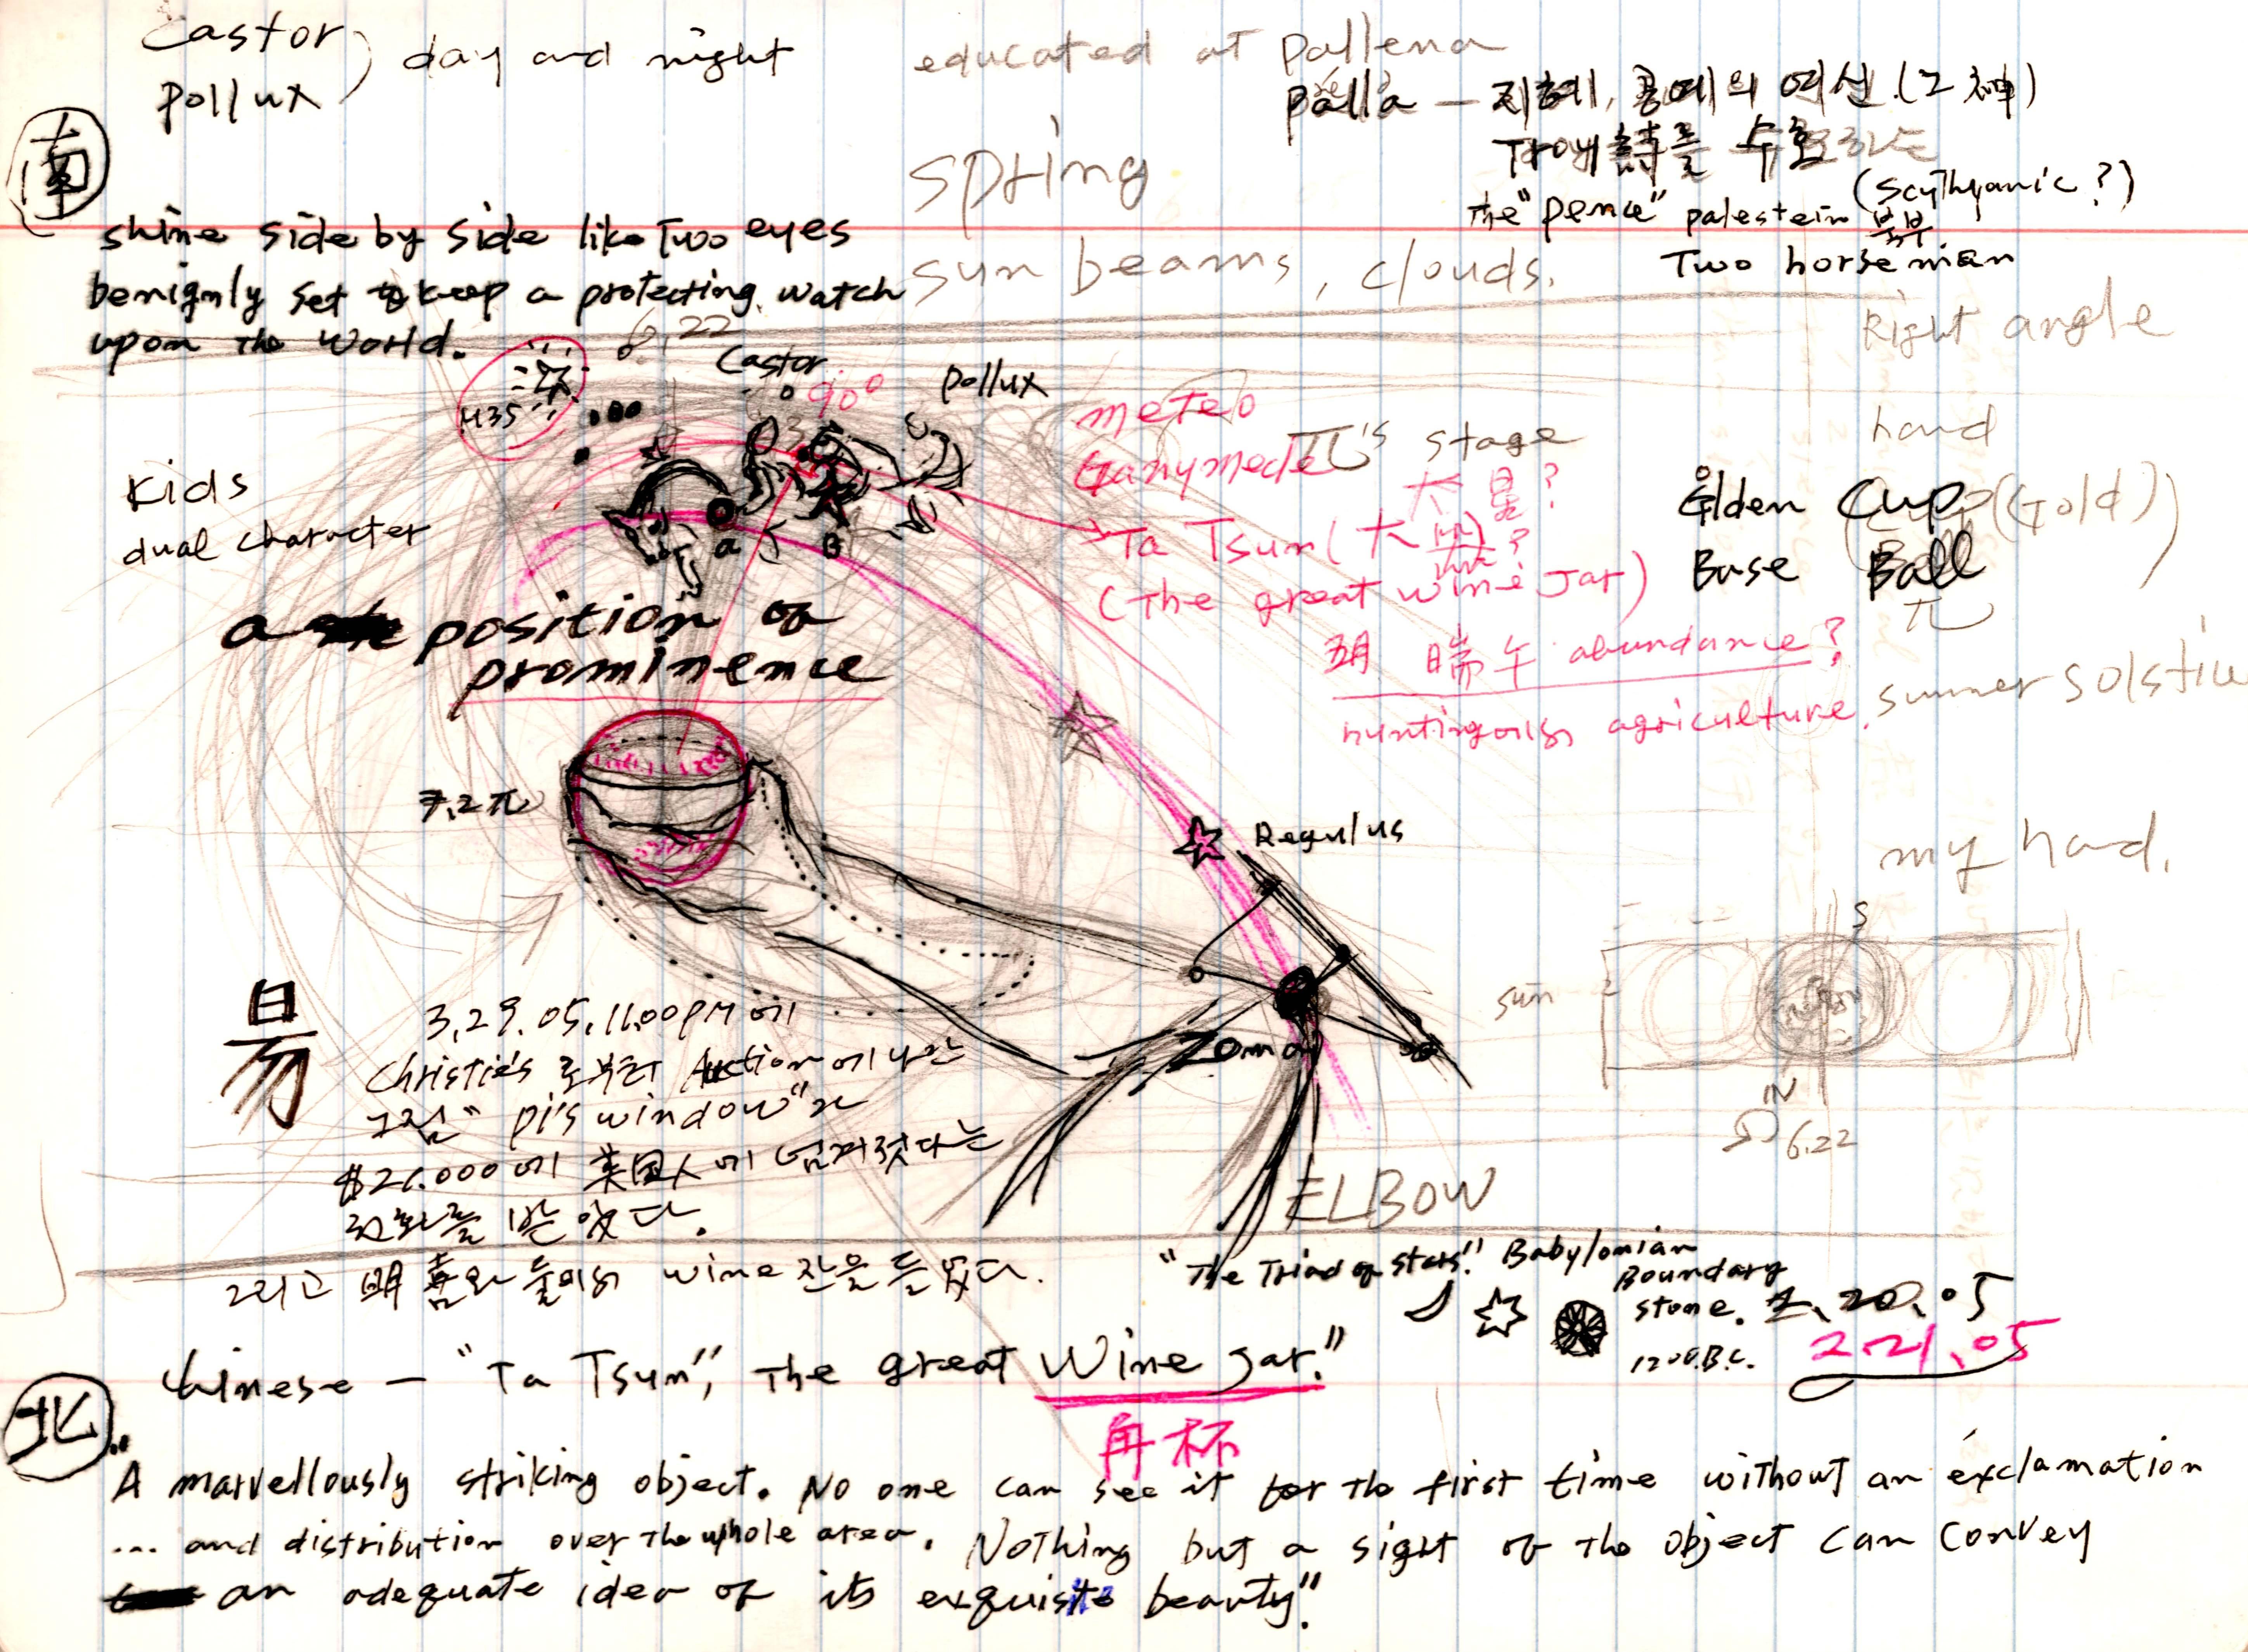 Castor
Pollux
day and night
educated at Pallena
Palla — 지혜, 공예의 여신 (2 神)
Troy 詩를 수호하는
The "pence" palestein (Scythyanic?)
Two horse man
南
Spring
shine side by side like Two eyes
benignly set to keep a protecting watch
upon The World.
sun beams, clouds.
Right angle
6.22
Castor
90°
Pollux
M35
meteo
Ganymede
π's stage
hand
大 星?
Kids
dual character
a
B
Ta Tsun (大
(The great wine Jar)
Golden Cup (Gold)
Base Ball
π
a position of
prominence
五月 端午 abundance?
agriculture.
summer solstice
7.2π
Regulus
my hand.
S
sun
Zoma
IN
6.22
易
3.29.05.11.00 PM 에
Christie's 로부터 Auction에 나간
그림 "pi's window"가
$21.000에 美国人에 넘겨졌다는
전화를 받았다.
그리고 明喜와 둘이서 wine 잔을 들었다.
ELBOW
"The Triad of stars" Babylonian
Boundary
stone.
1200.B.C.
2.20.05
2.21.05
Chinese — "Ta Tsun", The great Wine Jar."
角杯
北
"A marvellously striking object. No one can see it for The first time without an exclamation
... and distribution over The whole area. Nothing but a sight of The object can convey
an adequate idea of its exquisite beauty"